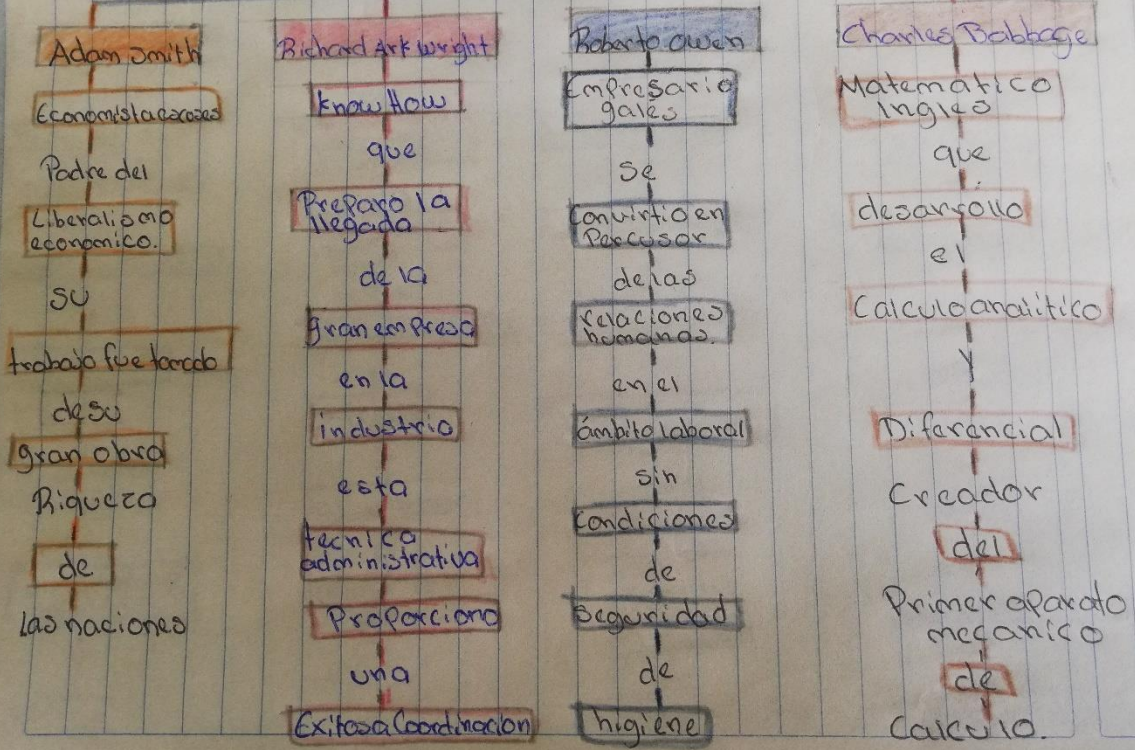 Adam Smith
Economista escoses
Padre del
Liberalismo
economico.
su
trabajo fue tomado
de su
gran obra
Riqueza
de
las naciones
Richard Arkwright
Know How
que
Preparo la
llegada
de la
gran empresa
en la
industria
esta
tecnica
administrativa
Proporciono
una
Exitosa Coordinacion
Roberto Owen
Empresario
gales
se
Convirtio en
Percusor
de las
relaciones
humanas.
en el
ámbito laboral
sin
condiciones
de
Seguridad
de
higiene
Charles Babbage
Matematico
Ingles
que
desarrollo
el
Calculo analitico
y
Diferencial
Creador
del
Primer aparato
mecanico
de
Calculo.